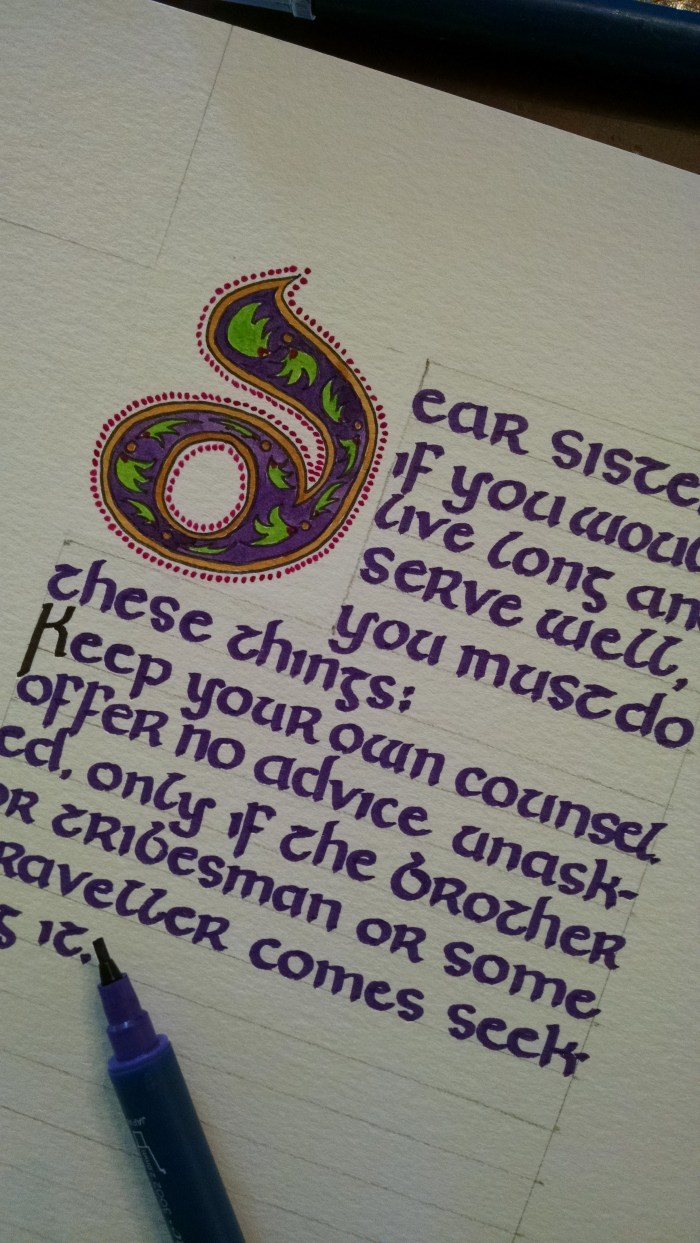 Dear Siste
if you woul
live long an
serve well,
you must do
these things:
Keep your own counsel.
offer no advice unask-
ed, only if the brother
or tribesman or some
raveller comes seek-
g it.